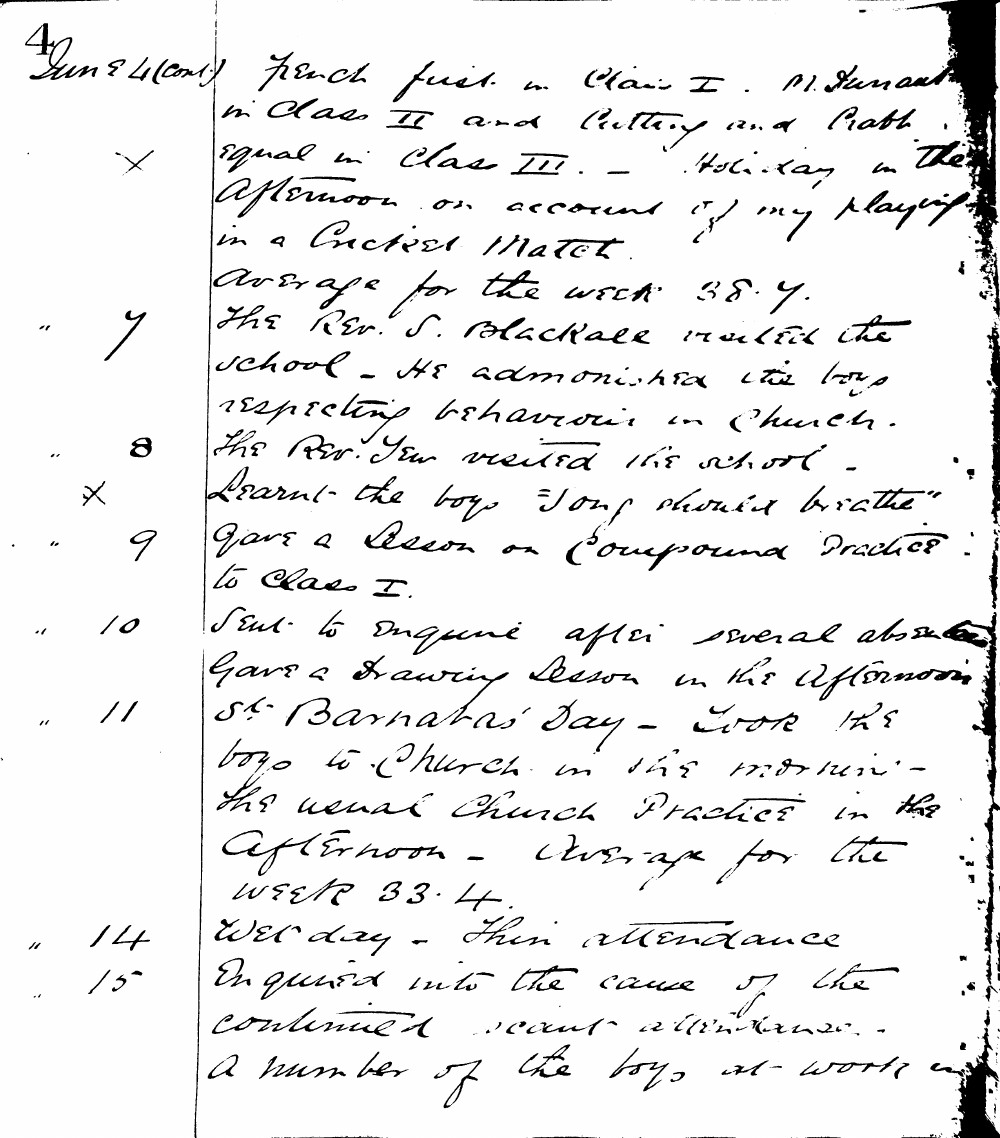 4
June 4 (cont.) French first in Class I. M. Durrant
in Class II and Cutting and Crabb.
X equal in Class III. - Holiday in the
Afternoon on account of my playing
in a Cricket Match.
Average for the week 38.7.
" 7 The Rev. S. Blackall visited the
school - He admonished the boys
respecting behaviour in Church.
" 8 The Rev. Yew visited the school -
X Learnt the boys "Song should breathe"
" 9 Gave a Lesson on Compound Practice
to Class I.
" 10 Sent to enquire after several absentees
Gave a Drawing Lesson in the Afternoon
" 11 St. Barnabas' Day - Took the
boys to Church in the morning -
The usual Church Practice in the
Afternoon - Average for the
week 33.4.
" 14 Wet day - Thin attendance
" 15 Enquired into the cause of the
continued scant attendance -
A number of the boys at work in